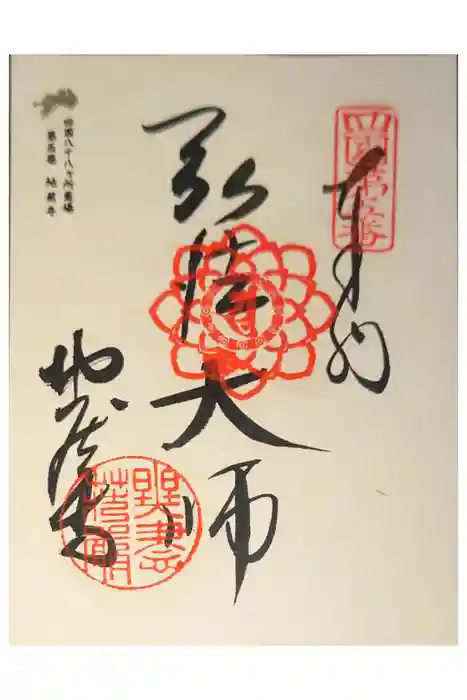 四國第五番
奉納
弘法大師
四國八十八ヶ所霊場
第五番 地蔵寺
地蔵寺